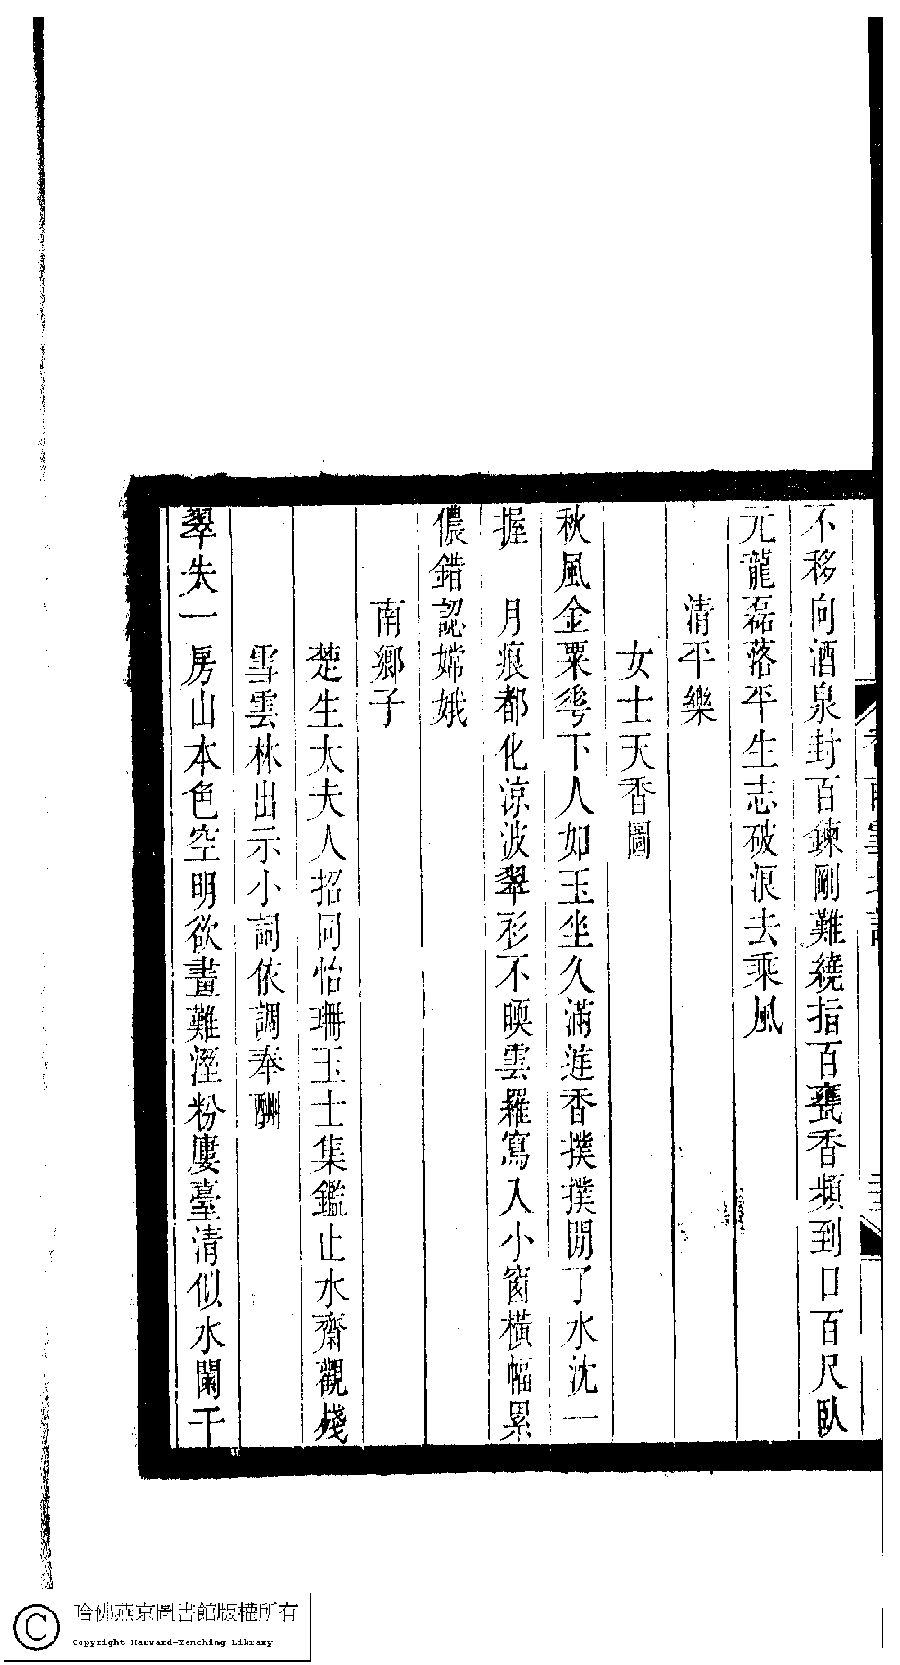 不移向酒泉封百鍊剛難繞指百甕香頻到口百尺臥
元龍磊落平生志破浪去乘風
清平樂
女士天香圖
秋風金粟花下人如玉坐久滿遊香撲撲閒了水沈一
握　月痕都化涼波翠衫不暎雲羅寫入小窗橫幅累
儂錯認嫦娥
南鄉子
楚生太夫人招同怡珊玉士集鑑止水齋觀棧
雪雲林出示小詞依調奉酬
翠失一房山本色空明欲畫難溼粉廔臺清似水闌干
哈佛燕京圖書館版權所有
Copyright Harvard-Yenching Library